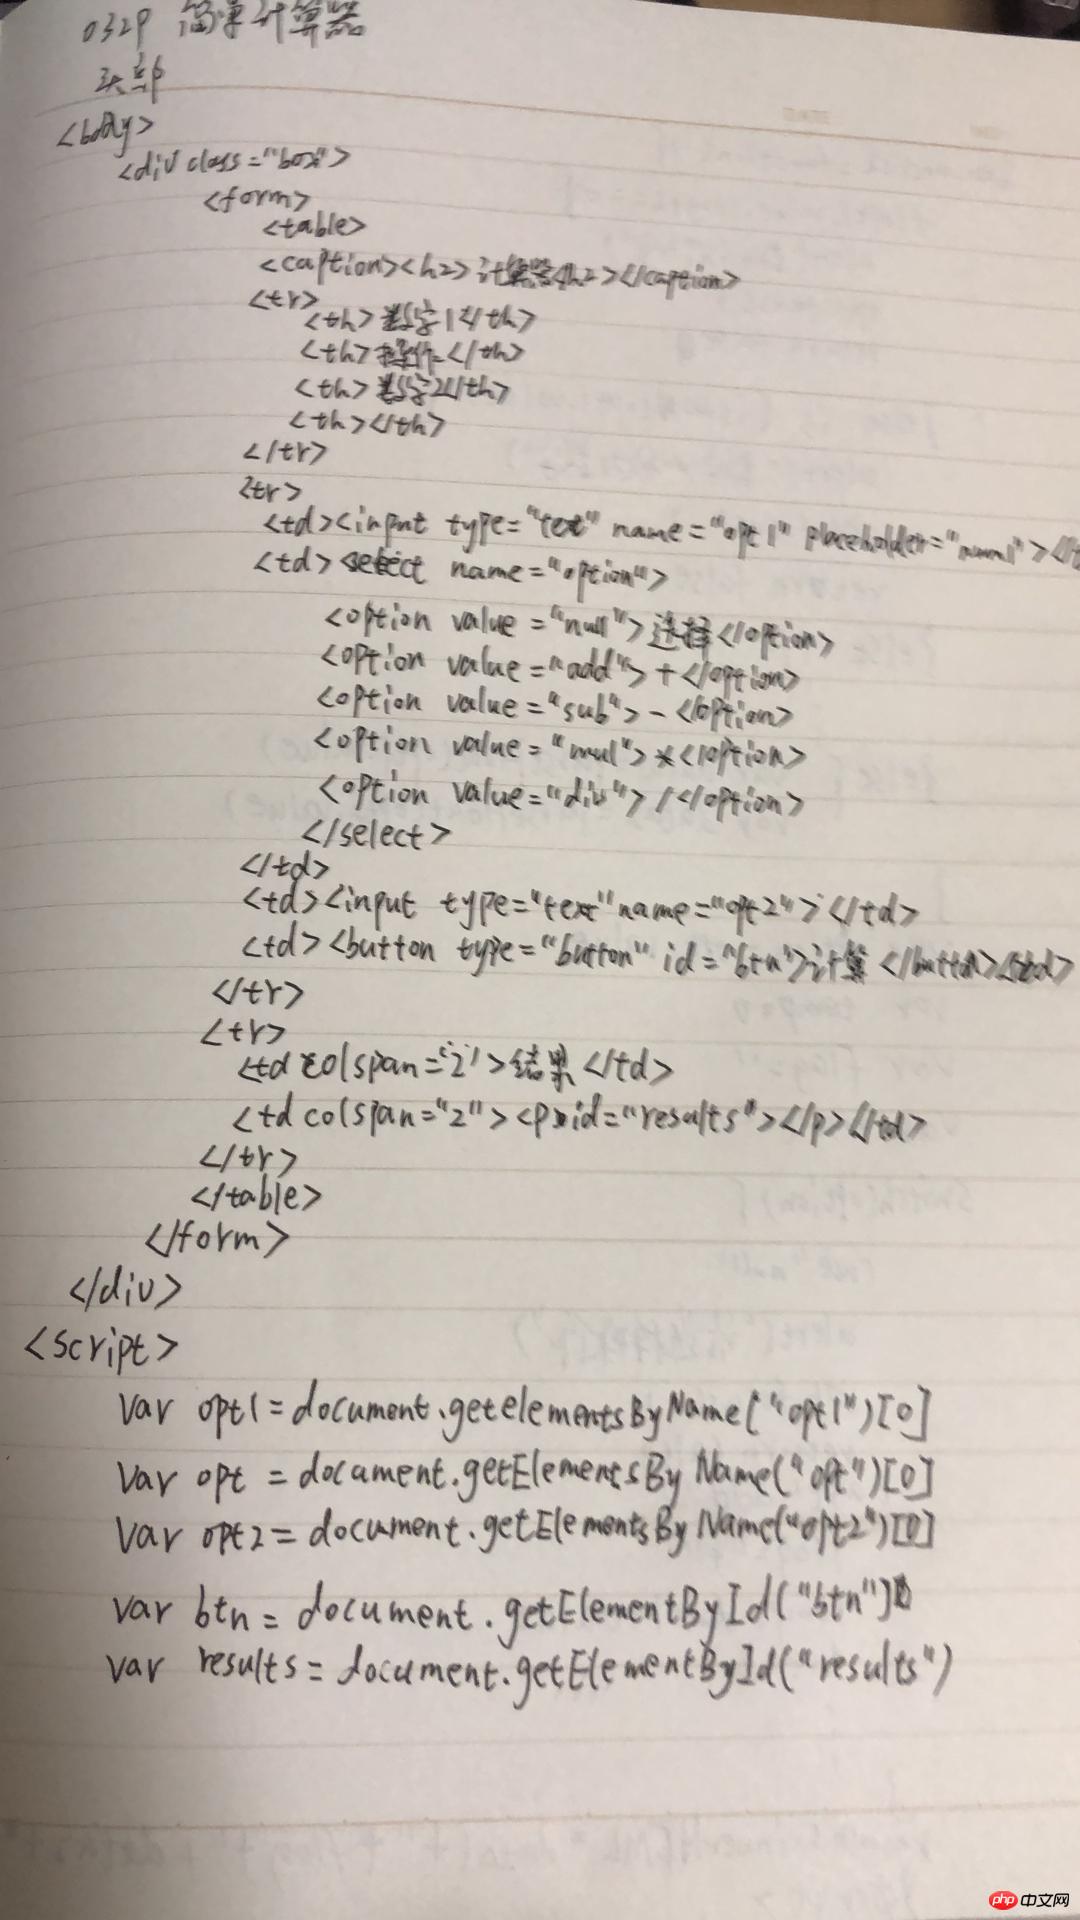 0329 简单计算器
头部
<body>
<div class="box">
<form>
<table>
<caption><h2>计算器<h2></caption>
<tr>
<th>数字1</th>
<th>操作</th>
<th>数字2</th>
<th></th>
</tr>
<tr>
<td><input type="text" name="opt1" placeholder="num1"></t
<td><select name="option">
<option value="null">选择</option>
<option value="add">+</option>
<option value="sub">-</option>
<option value="mul">*</option>
<option value="div">/</option>
</select>
</td>
<td><input type="text" name="opt2"></td>
<td><button type="button" id="btn">计算</button></td>
</tr>
<tr>
<td colspan="2">结果</td>
<td colspan="2"><p id="results"></p></td>
</tr>
</table>
</form>
</div>
<script>
var opt1=document.getelementsByName("opt1")[0]
var opt =document.getElementsByName("opt")[0]
var opt2=document.getElementsByName("opt2")[0]
var btn=document.getElementById("btn")
var results=document.getElementById("results")
php 中文网